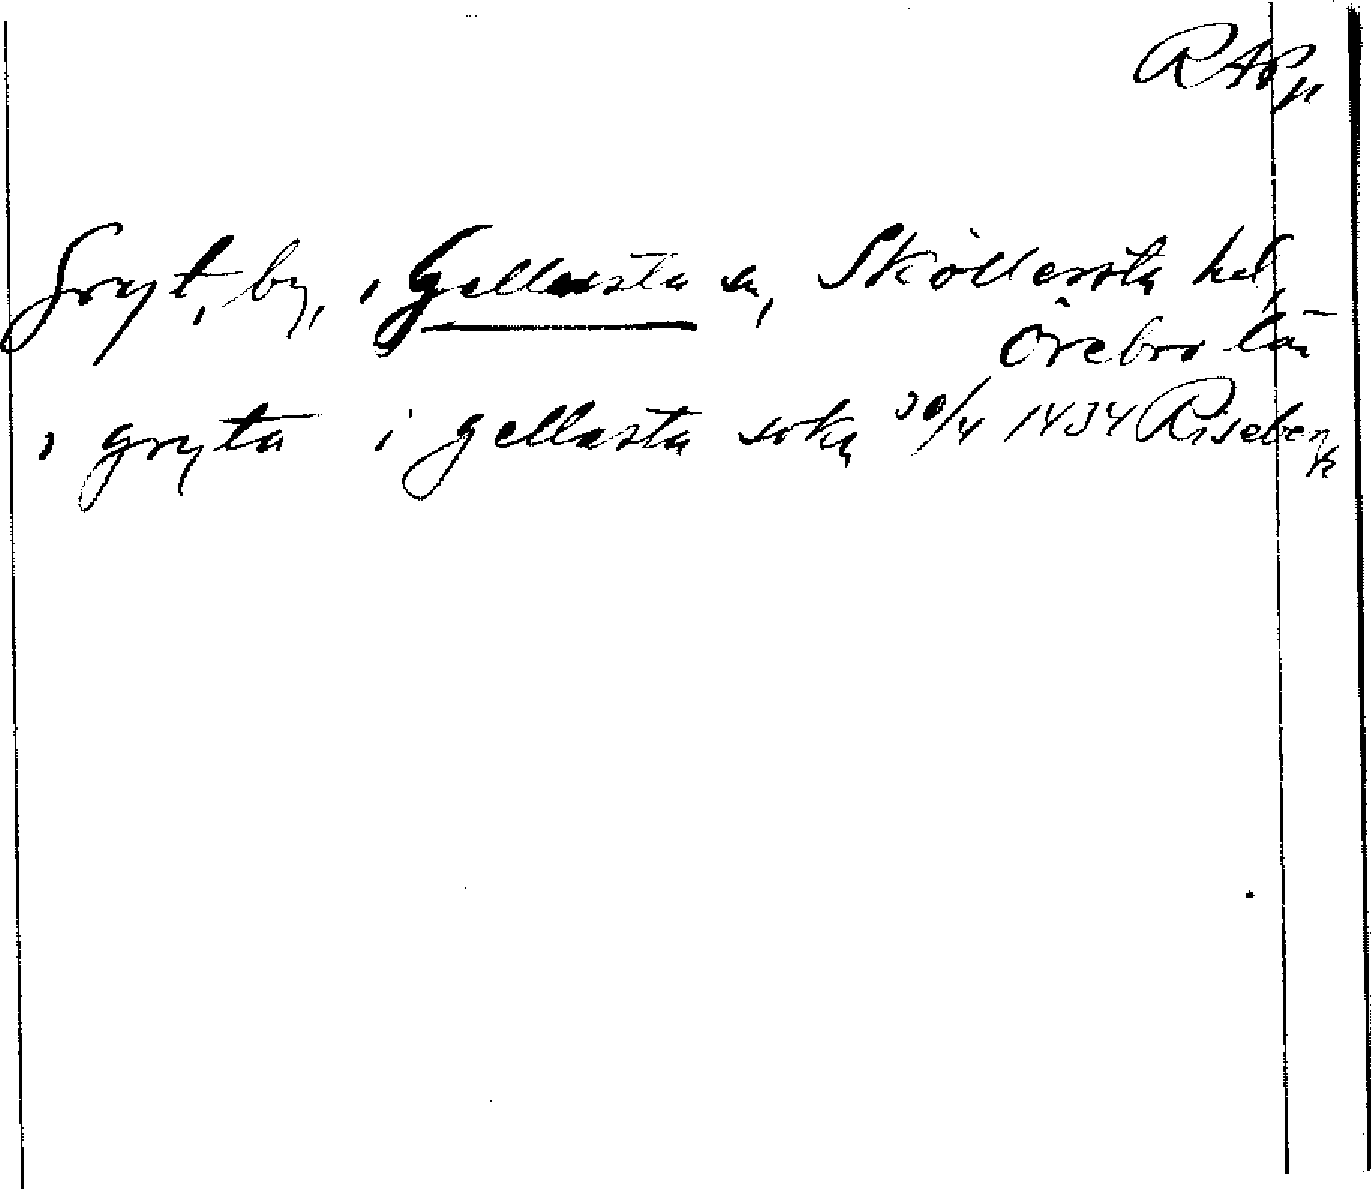 RAp
Gryt, by, i Gellersta sn, Sköllersta hd,
Örebro län
i gryta i gellasta sokn 30/4 1434 Riseberg